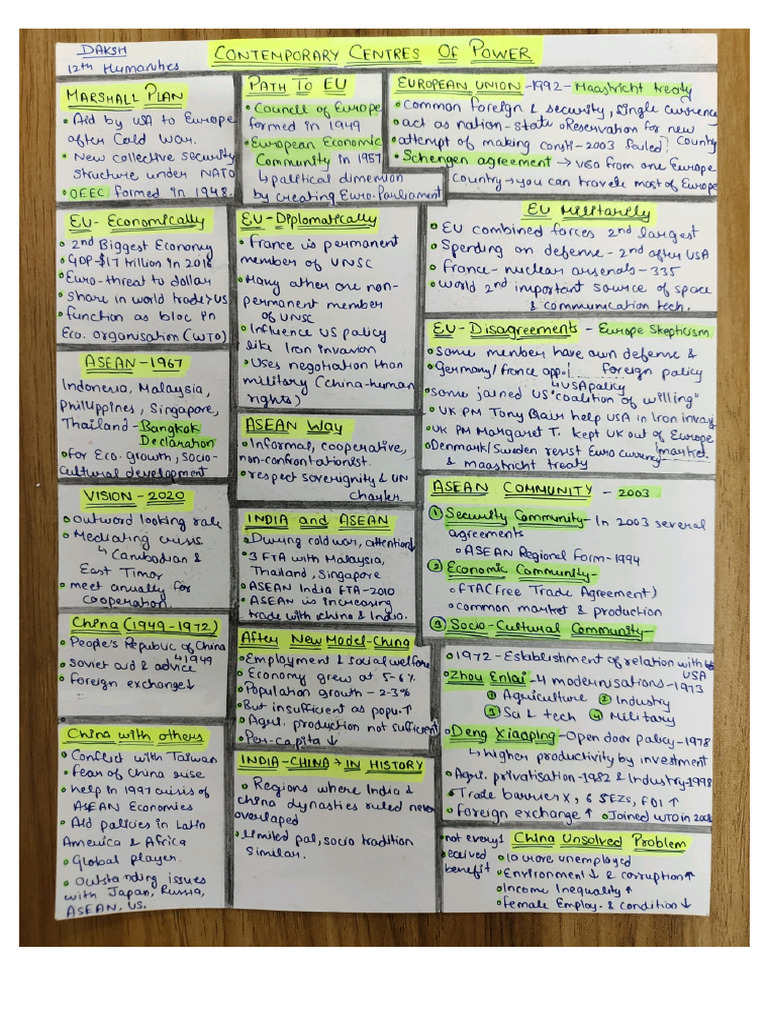 DAKSH
12th Humanities
CONTEMPORARY CENTRES OF POWER
MARSHALL PLAN
• Aid by USA to Europe
after Cold War.
• New collective security
structure under NATO
• OEEC formed in 1948.
PATH TO EU
• Council of Europe
formed in 1949
• European Economic
Community in 1957
↳ political dimension
by creating Euro. Parliament
EUROPEAN UNION - 1992 - Maastricht treaty
• common foreign & security, single currency
• act as nation-state • Reservation for new
country
• attempt of making consti - 2003 failed
• Schengen agreement → visa from one Europe
country → you can travel most of Europe
EU - Economically
• 2nd Biggest Economy
• GDP - $17 trillion in 2016
• Euro - threat to dollar
• share in world trade > US
• function as bloc in
Eco. organisation (WTO)
EU - Diplomatically
• France is permanent
member of UNSC
• Many other one non-
permanent member
of UNSC
• Influence US policy
like Iran invasion
• Uses negotiation than
military (china-human
rights)
EU Militarily
• EU combined forces 2nd largest
• Spending on defense - 2nd after USA
• France - nuclear arsenals - 335
• World 2nd important source of space
& communication tech.
EU - Disagreements - Europe Skepticism
• Some member have own defense &
foreign policy
• Germany/France opp.
↳ USA policy
• some joined US "coalition of willing"
• UK PM Tony Blair help USA in Iron invasi
• UK PM Margaret T. kept UK out of Europe
market.
• Denmark/Sweden resist Euro currency
& maastricht treaty
ASEAN - 1967
Indonesia, Malaysia,
Phillippines, Singapore,
Thailand - Bangkok
Declaration
• for Eco. growth, socio-
cultural development
ASEAN Way
• Informal, cooperative,
non-confrontationist.
• respect sovereignity & UN
charter.
ASEAN COMMUNITY - 2003
① Security Community - In 2003 several
agreements
• ASEAN Regional Form - 1994
② Economic Community -
• FTA (Free Trade Agreement)
• common market & production
③ Socio-Cultural Community -
VISION - 2020
• outword looking role
• Mediating crisis
↳ Cambodian &
East Timor
• meet annually for
cooperation.
INDIA and ASEAN
• During cold war, attention↓
• 3 FTA with Malaysia,
Thailand, Singapore
• ASEAN India FTA - 2010
• ASEAN is increasing
trade with china & India.
China (1949-1972)
• People's Republic of China
↳ 1949
• Soviet aid & advice
• Foreign exchange↓
After New Model - China
• Employment & social welfare
• Economy grew at 5-6%
• Population growth - 2-3%
• But insufficient as popu.↑
• Agri. production not sufficient
• Per-capita ↓
• 1972 - Establishment of relation with
USA
• Zhou Enlai - 4 modernisations - 1973
① Agriculture ② Industry
③ Sci & tech ④ Military
• Deng Xiaoping - Open door policy - 1978
↳ higher productivity by investment
• Agri. privatisation - 1982 & Industry - 1998
• Trade barrier X, 6 SEZs, FDI ↑
• Foreign exchange ↑ • Joined WTO in 2001
China with others
• Conflict with Taiwan
• fear of China rise
• help in 1997 crisis of
ASEAN Economies
• Aid policies in Latin
America & Africa
• Global player.
• Outstanding issues
with Japan, Russia,
ASEAN, US.
INDIA - CHINA → IN HISTORY
• Regions where India &
china dynasties ruled never
overlaped
• limited pol, socio tradition
similar.
China Unsolved Problem
• not every1
received
benefit
• 10 crore unemployed
• Environment↓ & corruption↑
• Income Inequality ↑
• female Employ. & condition ↓